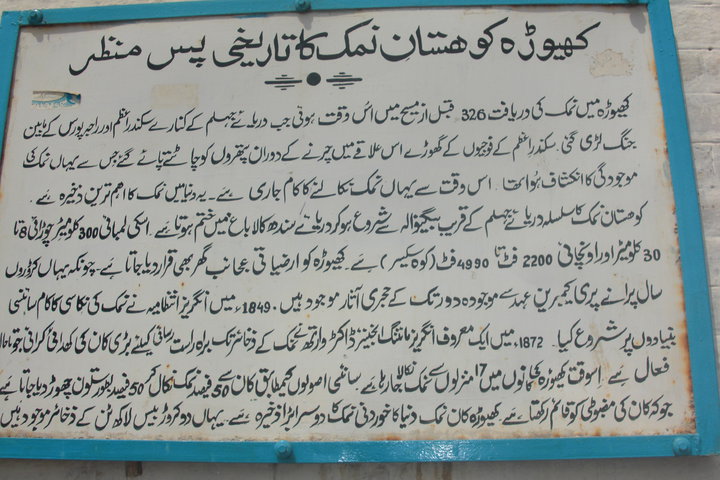 کھیوڑہ کوھستان نمک کا تاریخی پس منظر
کھیوڑہ میں نمک کی دریافت 326 قبل از مسیح میں اس وقت ہوئی جب دریائے جہلم کے کنارے سکندر اعظم اور راجہ پورس کے مابین
جنگ لڑی گئی۔ سکندر اعظم کے فوجیوں کے گھوڑے اس علاقے میں چرنے کے دوران پتھروں کو چاٹتے پائے گئے جس سے یہاں نمک کی
موجودگی کا انکشاف ہوا تھا۔ اس وقت سے یہاں نمک نکالنے کا کام جاری ہے۔ یہ دنیا میں نمک کا اہم ترین ذخیرہ ہے۔
کوھستان نمک کا سلسلہ دریائے جہلم کے قریب بیگنوالہ سے شروع ہو کر دریائے سندھ کالا باغ میں ختم ہوتا ہے۔ اسکی لمبائی 300 کلومیٹر چوڑائی 8 تا
30 کلومیٹر اور اونچائی 2200 فٹ تا 4990 فٹ (کوہ سکیسر) ہے۔ کھیوڑہ کو ارضیاتی عجائب گھر بھی قرار دیا جاتا ہے۔ چونکہ یہاں کروڑوں
سال پرانے پری کیمبرین عہد سے موجودہ دور تک کے حجری آثار موجود ہیں۔ 1849ء میں انگریز انتظامیہ نے نمک کی نکاسی کا کام سائنسی
بنیادوں پر شروع کیا۔ 1872ء میں ایک معروف انگریز مائننگ انجینئر ڈاکٹر وارتھ نے نمک کے ذخائر تک براہ راست رسائی کیلئے بڑی کان کی کھدائی کرائی جو تاحال
فعال ہے۔ اسوقت کھیوڑہ کی کانوں میں 17 منزلوں سے نمک نکالا جا رہا ہے۔ سائنسی اصولوں کے مطابق کان سے 50 فیصد نمک نکال کر 50 فیصد بطور ستون چھوڑ دیا جاتا ہے
جو کہ کان کی مضبوطی کو قائم رکھتا ہے۔ کھیوڑہ کان نمک دنیا کا خوردنی نمک کا دوسرا بڑا ذخیرہ ہے۔ یہاں دو کروڑ بیس لاکھ ٹن کے ذخائر موجود ہیں